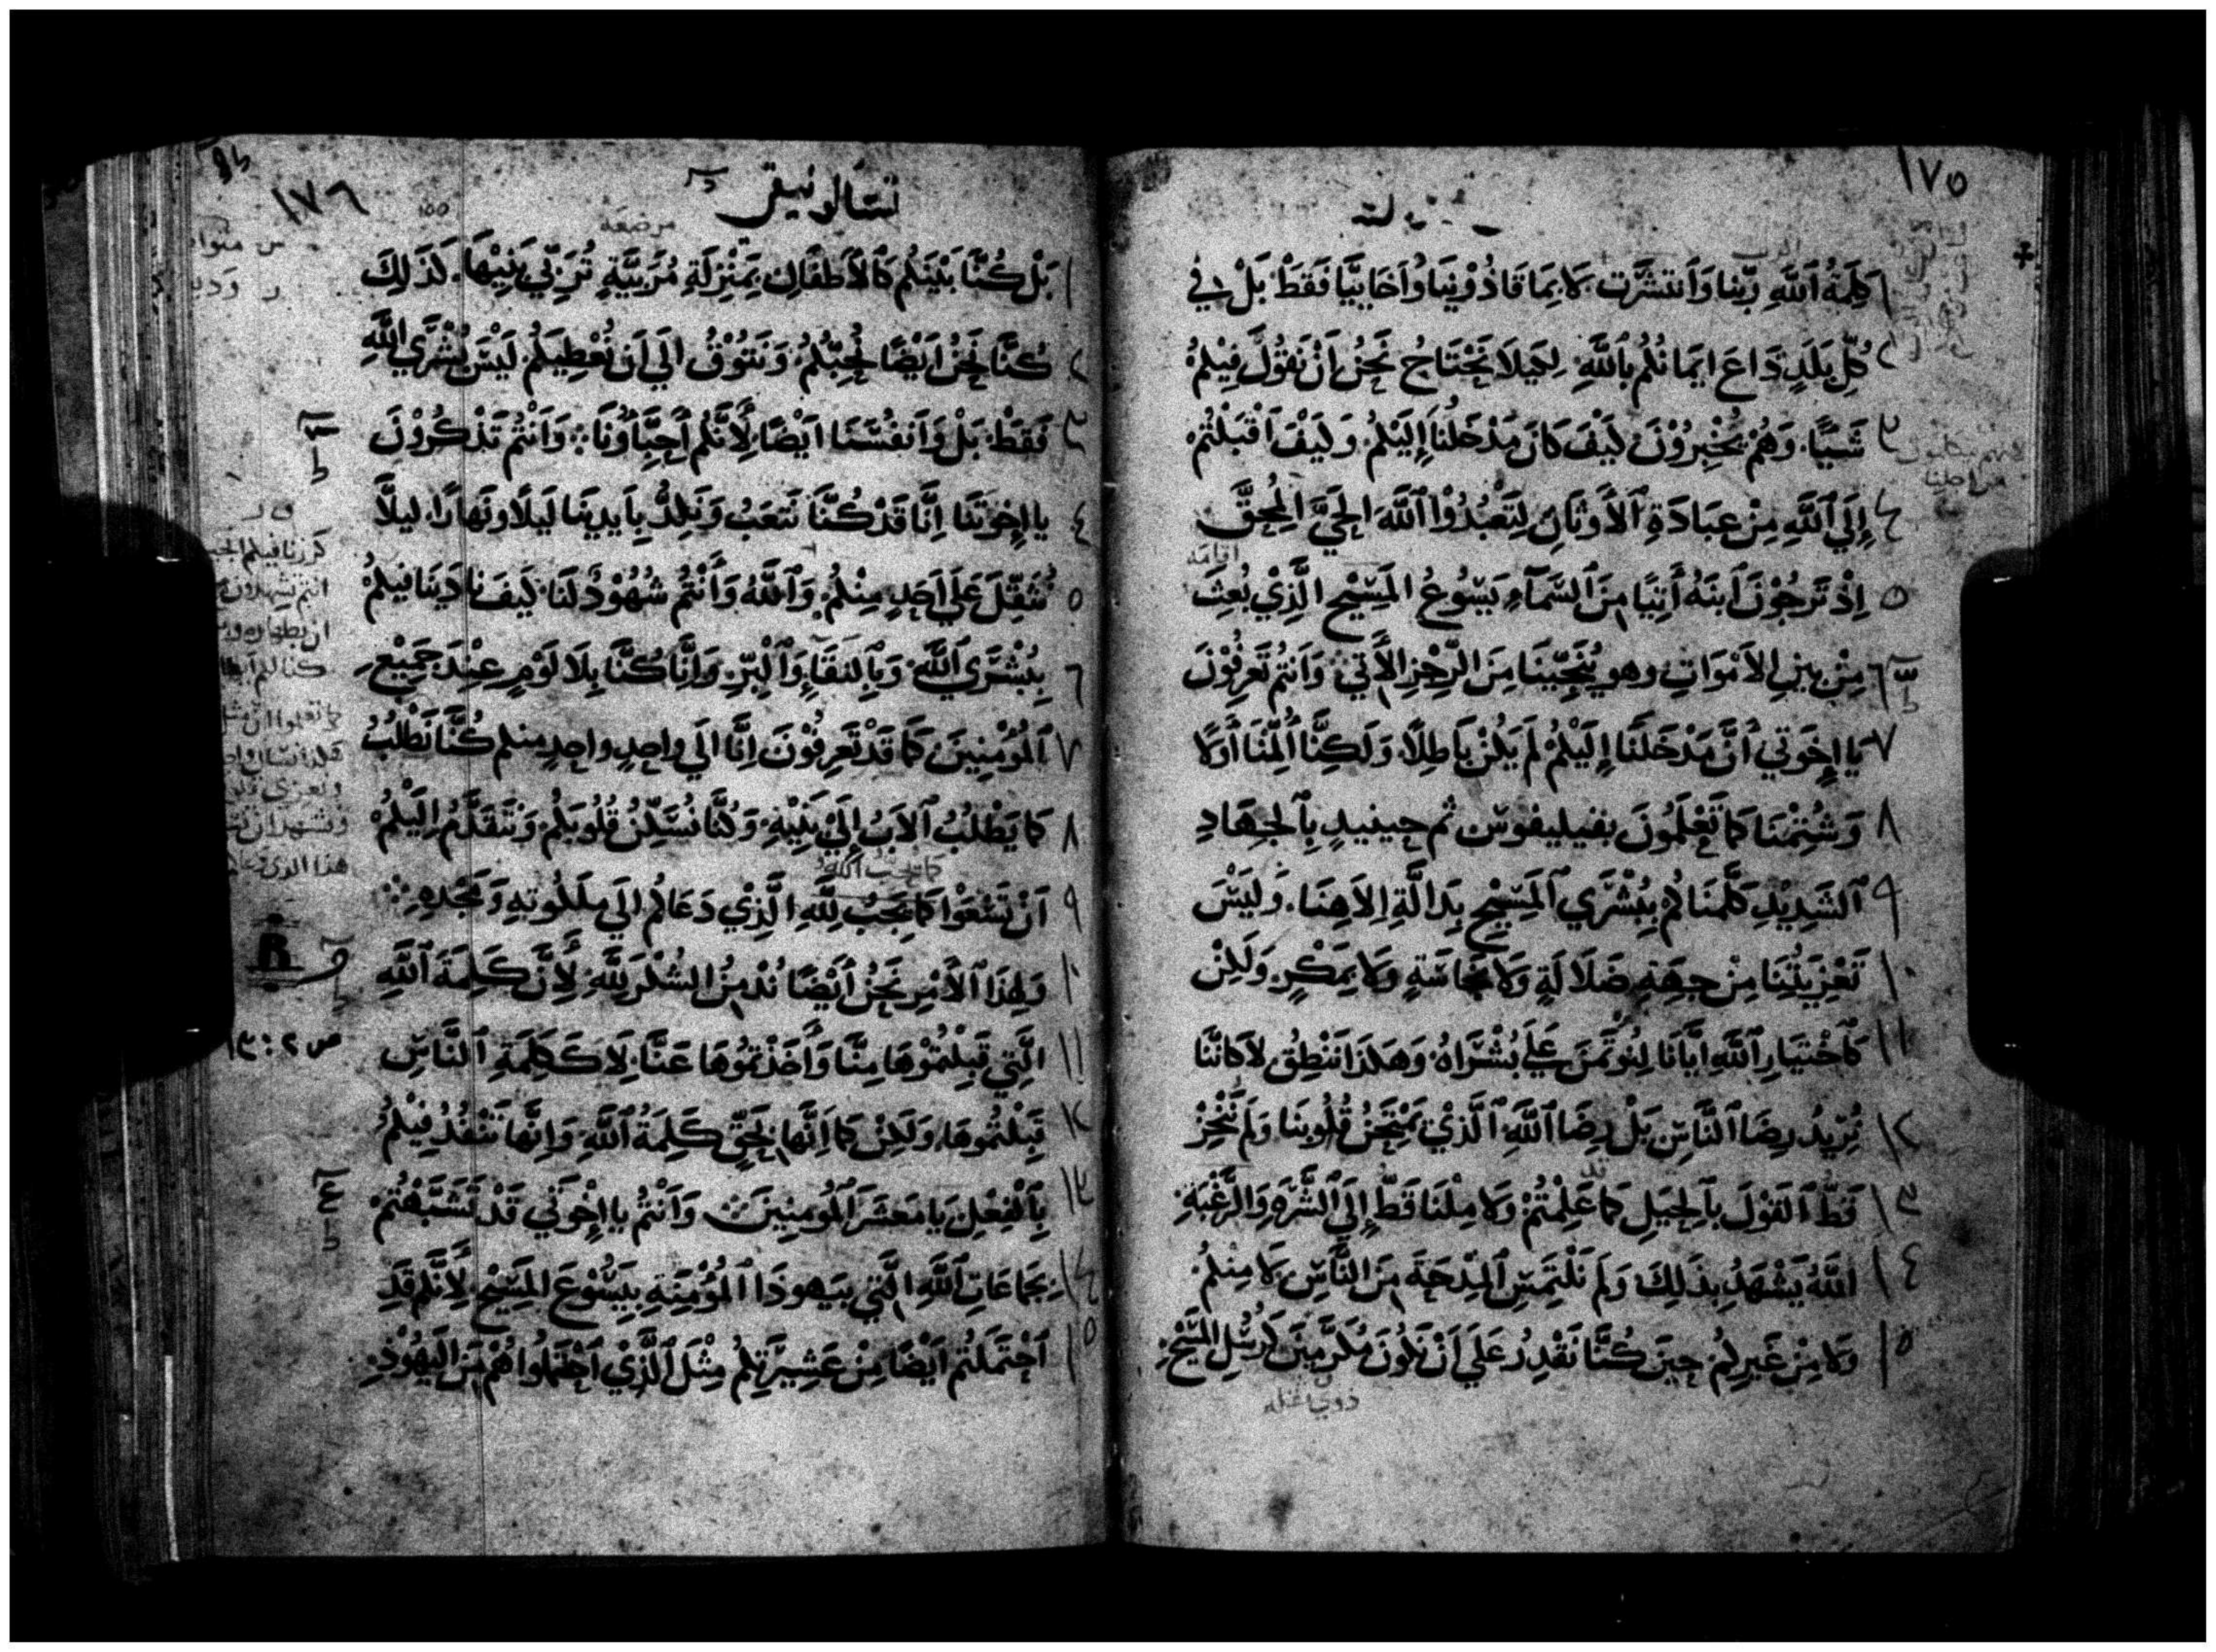 ١٧٥
١ كَلِمَةُ ٱللَّهِ رَبِّنا وَٱنتشَرَت لَا بِمَا قَاذُوْنِيَا وَاَخَايِيَّا فَقَطْ بَلْ في
٢ كُلِّ بَلَدٍ ذَاعَ ايمَانُكُم بِٱللَّهِ لِكَيلَا نَحْتَاجُ نَحْنُ اَنْ نَقُوْلَ فِيْكُمْ
٣ شَيًّا وَهُمْ يُخْبِرُوْنَ كَيْفَ كَانَ مَدْخَلُنَا إِلَيْكُمْ وَكَيْفَ اَقْبَلْتُمْ
٤ إِلَي ٱللَّهِ مِنْ عِبَادَةِ ٱلأَوثَانِ لِتَعْبُدُوْا ٱللَّهَ الحَيَّ المُحِقَّ
اقامه
٥ اِذْ تَرجُوْنَ ٱبنَهُ أَتِيًا مِنَ ٱلسَّمَآءِ يَسُوعُ المَسِيْحِ الَّذِيْ بُعِثَ
٦ مِنْ بينِ الاَمْوَاتِ وهو يُنَجِّيْنَا مِنَ الرِّجْزِ الأَتي وَاَنتُم تَعرِفُوْنَ
٧ يا إِخْوَتي أَنَّ مَدْخَلَنَا إِلَيْكُمْ لَم يَكُنْ بَاطِلًا وَلَكِنَّا أُلِمْنَا أَوَلًا
٨ وَشُتِمْنَا كَمَا تَعْلَمُونَ بفيليفوس ثم حينيدٍ بِٱلجِهَادِ
٩ ٱلشَدِيْدِ كَلَّمْنَاكُم بِبُشْرَي ٱلمَسِيْحِ بِدَالَّةِ اِلَاهِنَا. وَلَيْسَ
١٠ تَعْزِيَتُنَا مِنْ جِهَةِ ضَلَالَةٍ وَلَا نَجَاسَةٍ وَلَا بِمَكْرٍ وَلَكِنْ
١١ كَٱخْتيَارِ ٱللَّهِ ايَّانَا لِنُوتَمَنَ عَلَي بُشْرَاهُ وَهَكَذَا نَنْطِقُ لَا كَانَّنَا
١٢ نُرِيْدُ رِضَا ٱلنَّاسِ بَلْ رِضَا ٱللَّهِ ٱلَّذيْ يَمْتَحِنُ قُلُوبَنَا وَلَم نُخْبِرْ
١٣ قَطُّ ٱلقَوْلَ بِٱلحِيَلِ كَمَا عَلِمْتُمْ وَلَا مِلْنَا قَطُّ إِلَي ٱلشَّرَهِ وَالرَّغْبَةِ
١٤ اللَّهُ يَشْهَدُ بِذَلِكَ وَلَم نَلْتَمِسِ ٱلمِدْحَةَ مِنَ النَّاسِ لَا مِنْكُمْ
١٥ وَلَا مِنْ غَيرِكُمْ حِينَ كُنَّا نَقْدِرُ عَلَي اَنْ نَكُونَ مُكَرَّمِينَ كَرُسُلِ المَسِيْحِ
١٧٦
تسالونيقي
مرضعة
١ بَلْ كُنَّا بَيْنَكُم كَٱلأَطفَالِ بِمَنْزِلَةِ مُرَبِّيَّةٍ تُرَبِّي بَنِيْهَا. كَذَلِكَ
٢ كُنَّا نَحْنُ اَيْضًا نُحِبُّكُمْ وَنَتُوْقُ الَي اَن نُعْطِيَكُم لَيْسَ بُشْرَي اللَّهِ
٣ فَقَطْ بَلْ وَاَنفُسَنَا اَيْضًا لِأَنَّكُم أَحِبَّاؤُنَا وَاَنْتُمْ تَذْكُرُوْنَ
٤ يا إِخْوَتَنَا اِنَّا قَدْ كُنَّا نَتعَبُ وَنَكِدُّ بِأَيدِينَا لَيلًا وَنَهَارًا ليلَّا
٥ نُثَقِّلَ عَلَي اَحَدٍ مِنْكُمْ وَٱللَّهُ وَأَنْتُم شُهُوْدٌ لَنَا كَيفَ نادَيْنَا فيكُمْ
٦ بِبُشْرَي ٱللَّهِ وَبِٱلنقَاءِ وَٱلْبِرِّ وَاِنَّا كُنَّا بِلَا لَوْمٍ عِنْدَ جَمِيْعِ
٧ ٱلمُؤْمِنِينَ كَمَا قَدْ تَعرِفُوْنَ اِنَّا الَي واحِدٍ واحِدٍ منكم كُنَّا نَطْلُبُ
٨ كَمَا يَطْلُبُ ٱلاَبُ إِلَيْ بَنِيْهِ وَكُنَّا نُسَكِّنُ قُلُوبَكُمْ وَنَتَقَدَّمُ إِلَيْكُمْ
كما يحب الله
٩ اَنْ تَسْعَوْا كَمَا يَجِبُ لِلَّهِ الَّذِيْ دَعَاكُم الَي مَلَكُوتِهِ وَمَجْدِهِ
١٠ وَلِهَذَا ٱلأَمْرِ نَحْنُ أَيْضًا نُدْمِنُ الشُكْرَ لِلَّهِ لِأَنَّ كَلِمَةَ ٱللَّهِ
١١ الَّتِي قَبِلْتُمُوْهَا مِنَّا وَأَخَذْتُمُوهَا عَنَّا لَا كَكَلِمَةِ ٱلنَّاسِ
١٢ قَبِلْتُمُوهَا وَلَكِنْ كَمَا اِنَّهَا بِحَقٍّ كَلِمَةُ ٱللَّهِ وَاِنَّهَا تَنْفُذُ فِيْكُمْ
١٣ بِٱلْفِعْلِ يَا مَعشَرَ ٱلمُومِنِيْنَ وَأَنْتُم يا إِخْوَتي قَدْ تَشَبَّهْتُمْ
١٤ بِجَمَاعَاتِ ٱللَّهِ الَّتي بيَهوذَا ٱلمُؤْمِنَةِ بِيَسُوْعَ المَسِيْحِ لِأَنَّكُم قَدِ
١٥ ٱحْتَمَلتُم اَيْضًا مِنْ عَشِيرَتِكُم مِثْلَ ٱلَّذِيْ ٱحْتَمَلُوا هُمْ مِنَ اليَهُوْذِ